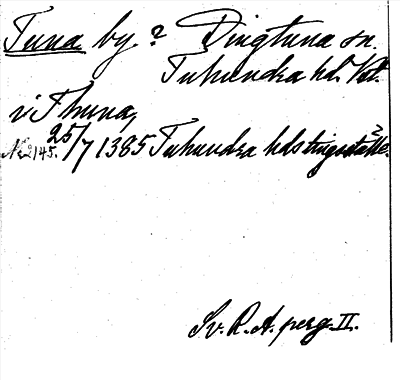 Tuna by? Dingtuna sn.
Tuhundra hd. Vstm.
i Thuna,
No 2145. 25/7 1385 Tuhundra hds tingsställe.
Sv. R. A. perg. II.